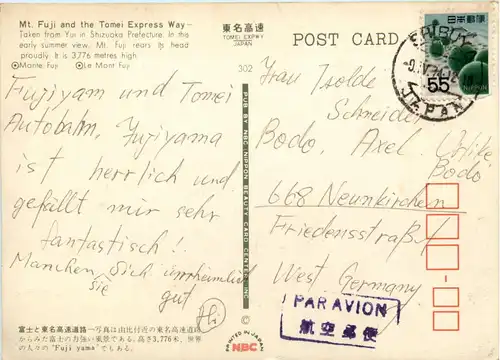 Mt. Fuji and the Tomei Express Way—
Taken from Yui in Shizuoka Prefecture. In this
early summer view, Mt. Fuji rears its head
proudly. It is 3,776 metres high.
Monte Fuji Le Mont Fuji
東名高速
TOMEI EXPWY
JAPAN
302
POST CARD
日本郵便
55
NIPPON
JAPAN
Fujiyam und Tomei
Autobahn, Fujiyama
ist herrlich und
gefällt mir sehr
fantastisch!
Manchen, Sich
sie gut
Frau Isolde
Schneide,
Bodo, Axel, Ulrike,
Bodo
668 Neunkirchen
Friedensstraße
West Germany
PAR AVION
航空郵便
PUB. BY NBC NIPPON BEAUTY CARD CENTER, INC.
©
PRINTED IN JAPAN
NBC
富士と東名高速道路—写真は由比付近の東名高速道路
からみた富士の力強い風景である。高さ3,776米、世界
の人々の"Fuji yama"でもある。